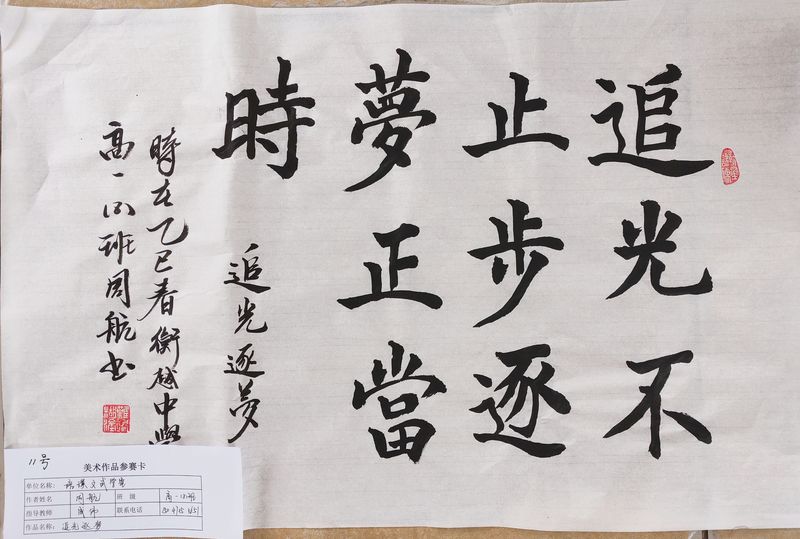 追光不
止步逐
夢正當
時
追光逐夢
時在乙巳春衡越中學
高一 班周航书
11号
美术作品参赛卡
单位名称:
作者姓名 周航 班级 高一 班
指导教师 联系电话
作品名称: 追光逐梦